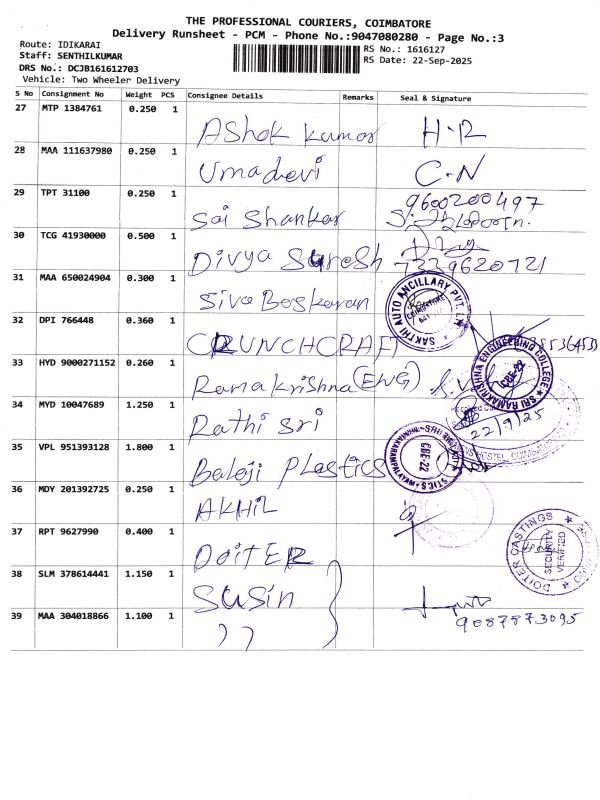 THE PROFESSIONAL COURIERS, COIMBATORE
Delivery Runsheet - PCM - Phone No.:9047080280 - Page No.:3
Route: IDIKARAI
RS No.: 1616127
Staff: SENTHILKUMAR
RS Date: 22-Sep-2025
DRS No.: DCJB161612703
Vehicle: Two Wheeler Delivery
S No Consignment No Weight PCS Consignee Details Remarks Seal & Signature
27 MTP 1384761 0.250 1 Ashok kumar H-R
28 MAA 111637980 0.250 1 Umadevi C-N
29 TPT 31100 0.250 1 Sai Shankar 9600200497
30 TCG 41930000 0.500 1 Divya Suresh 7339620721
31 MAA 650024904 0.300 1 Siva Baskaran
SAKTHI AUTO ANCILLARY PVT. LTD
32 DPI 766448 0.360 1 CRUNCHCRAFT
33 HYD 9000271152 0.260 1 Ramakrishna (ENG)
SRI RAMAKRISHNA ENGINEERING COLLEGE CBE-22
34 MYD 10047689 1.250 1 Rathi Sri
22/9/25
35 VPL 951393128 1.800 1 Balaji Plastics
CBE-22
36 MDY 201392725 0.250 1 AKHIL
37 RPT 9627990 0.400 1 DOITER
DOITER CASTINGS
SECURITY VERIFIED
38 SLM 378614441 1.150 1 Susin
39 MAA 304018866 1.100 1 ))
9087873095